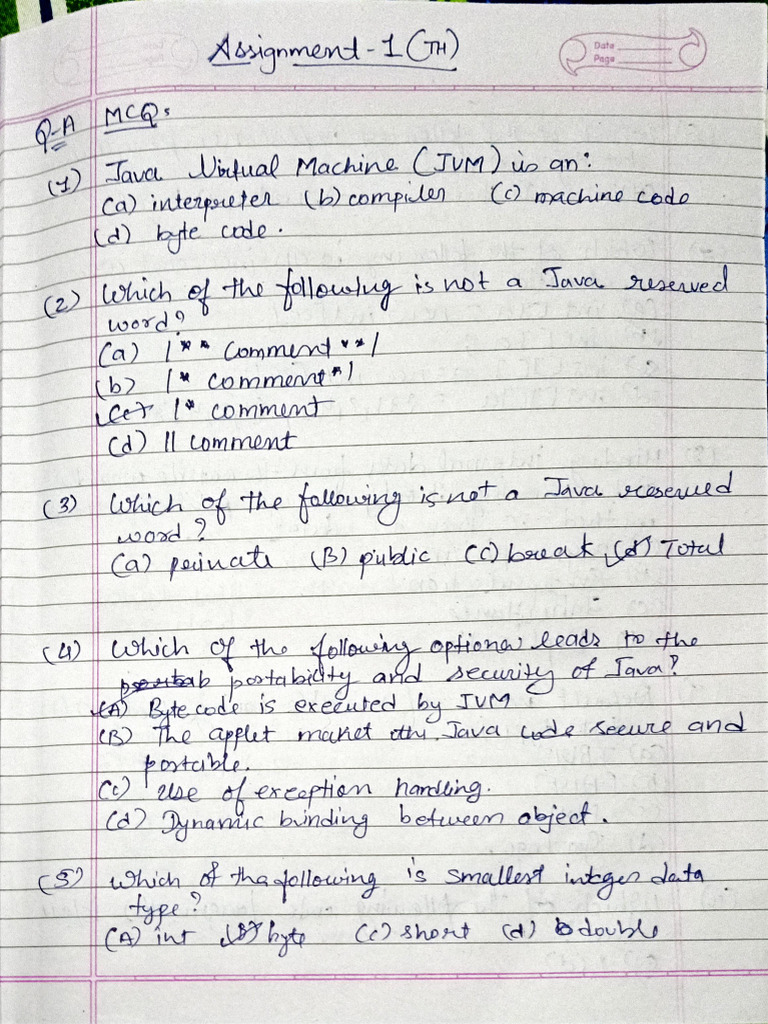 Assignment-1 (TH)
Date
Page
Q-A MCQs
(1) Java Virtual Machine (JVM) is an:
(a) interpreter (b) compiler (c) machine code
(d) byte code.
(2) Which of the following is not a Java reserved
word?
(a) /** comment **/
(b) /* comment */
(c) /* comment
(d) // comment
(3) Which of the following is not a Java reserved
word?
(a) private (B) public (C) break (d) Total
(4) Which of the following options leads to the
portability and security of Java?
(A) Bytecode is executed by JVM
(B) The applet Java code secure and
portable.
(c) Use of exception handling.
(d) Dynamic binding between object.
(5) Which of the following is smallest integer data
type?
(A) int (B) byte (c) short (d) double